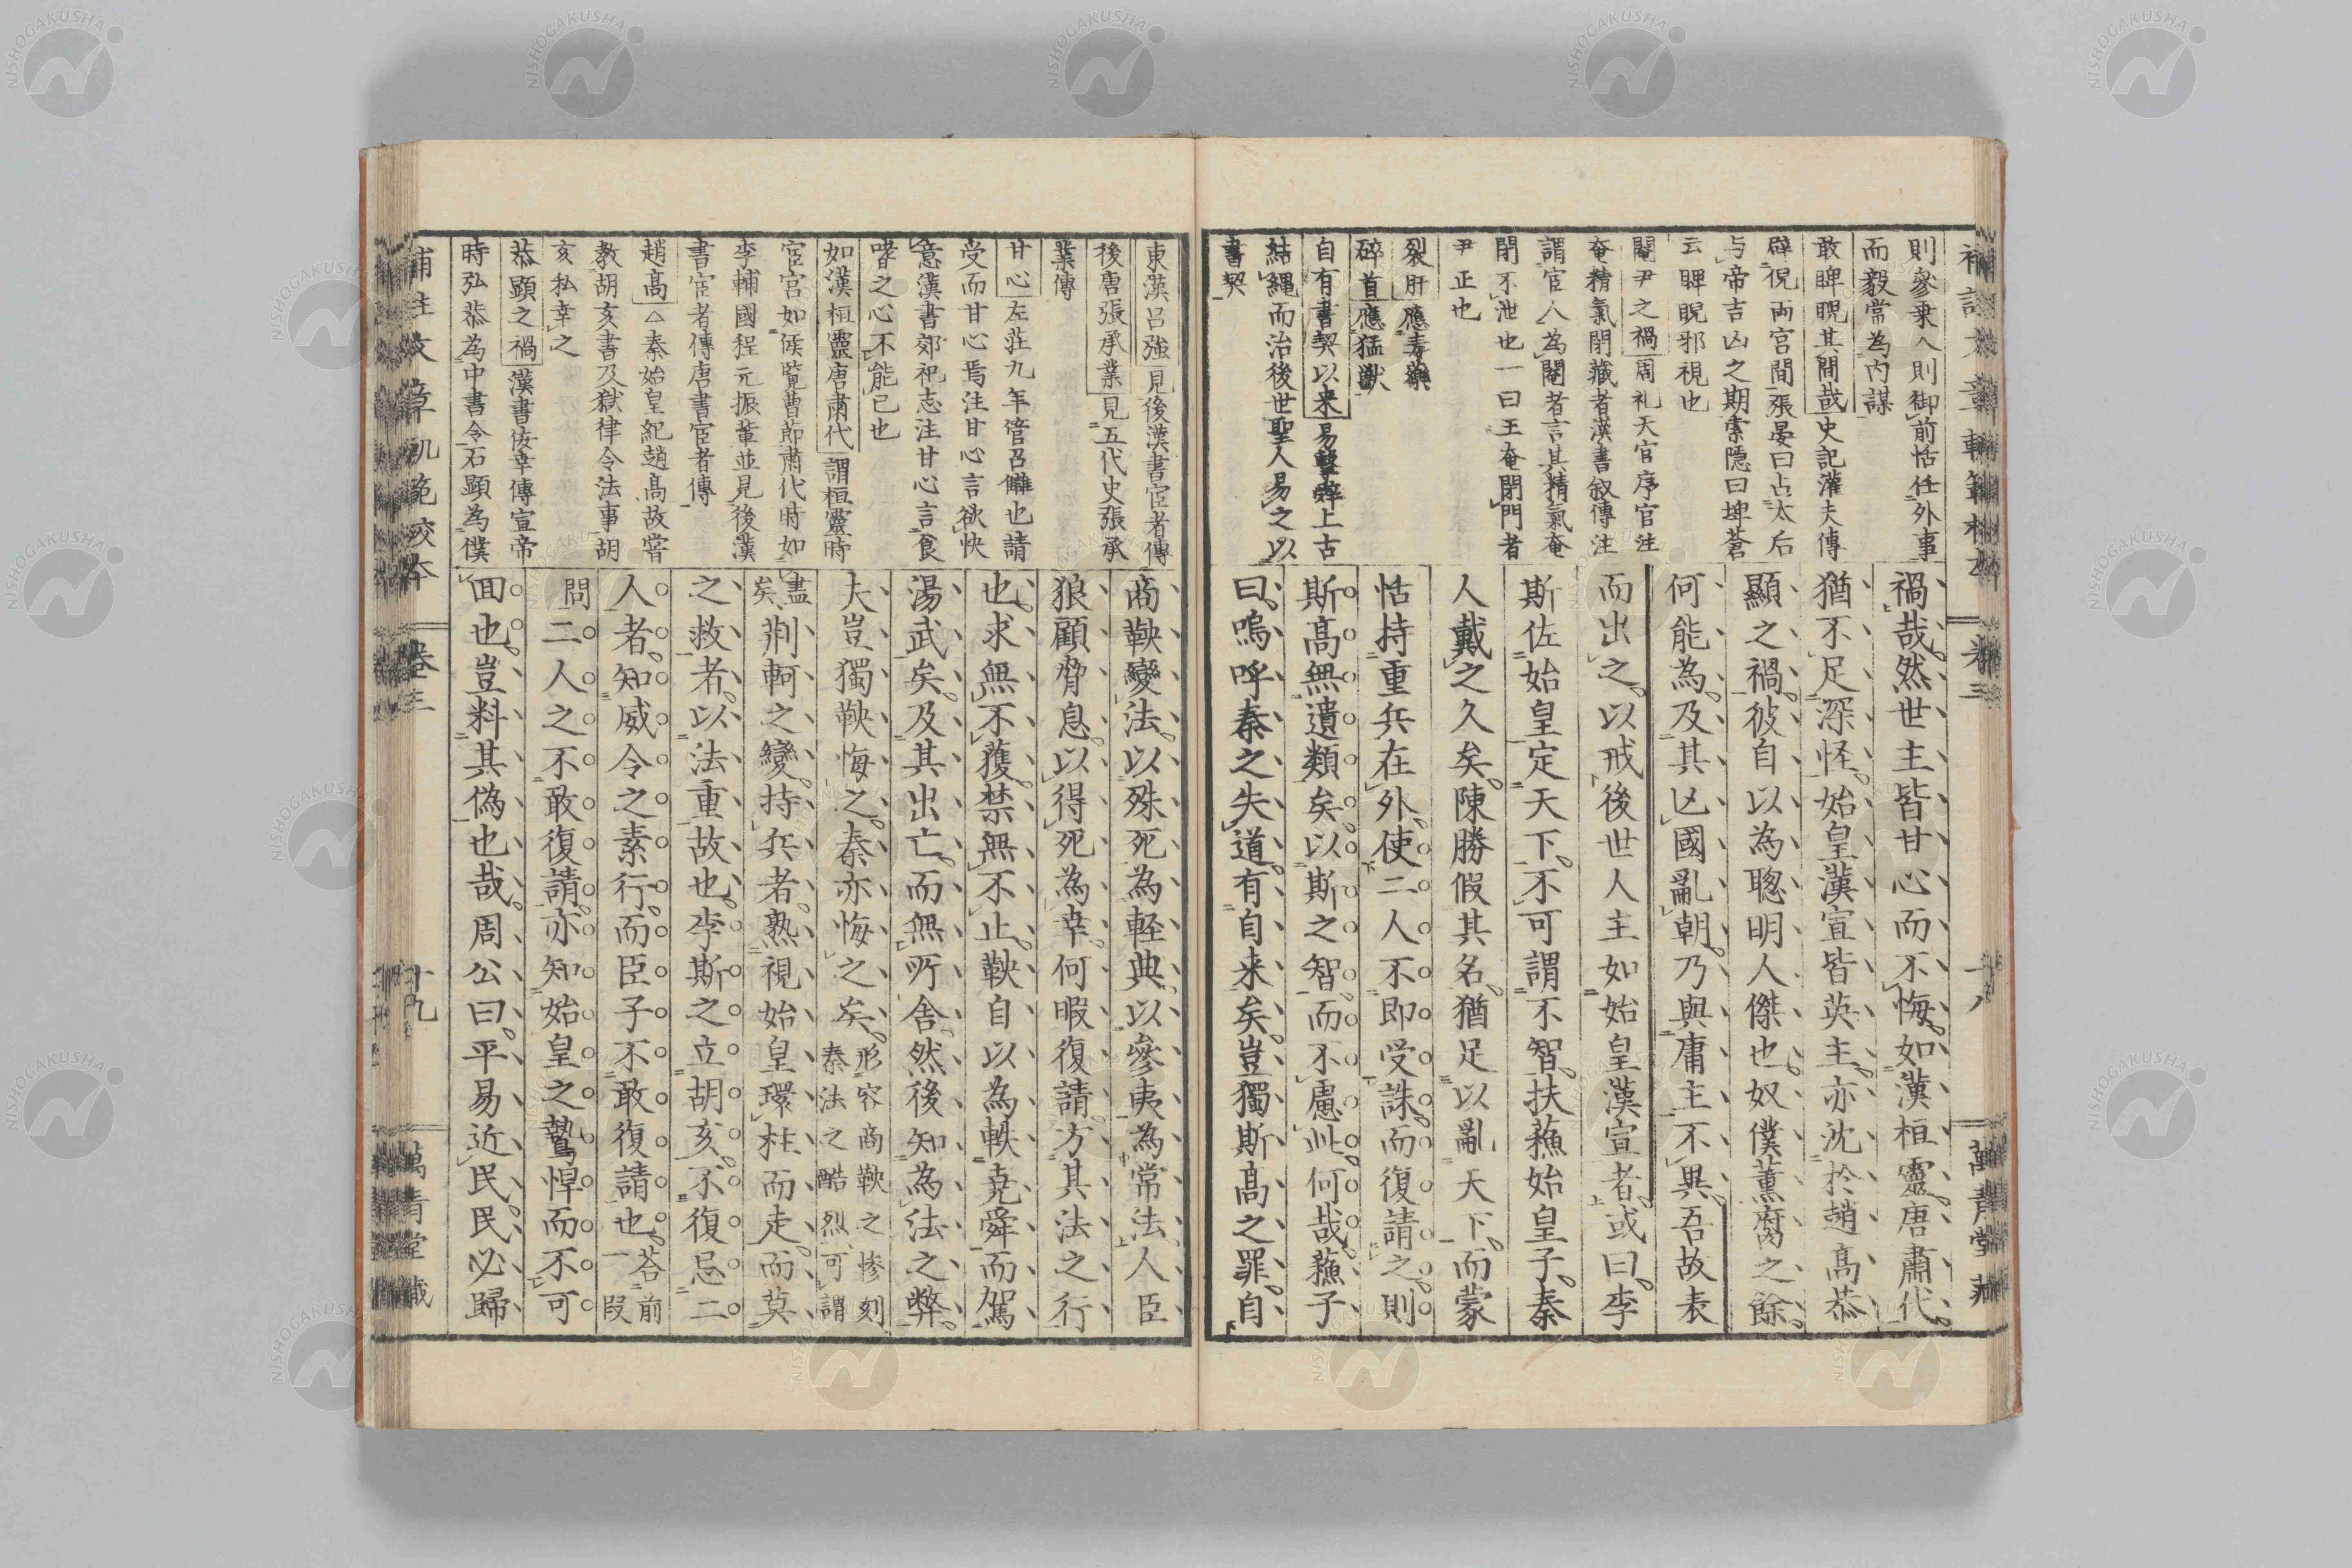 則參乗入則御前恬任外事
而毅常為内謀
敢睥睨其間哉史記灌夫傳
辟倪両宮間張晏曰占太后
与帝吉凶之期索隠曰埤蒼
云睥睨邪視也
閹尹之禍周礼天官序官注
奄精氣閉藏者漢書叙傳注
謂宦人為閹者言其精氣奄
閉不泄也一曰主奄閉門者
尹正也
裂肝應毒藥
碎首應猛獣
自有書契以来易繫辭上古
結縄而治後世聖人易之以
書契
禍哉然世主皆甘心而不悔如漢桓靈唐肅代
猶不足深怪始皇漢宣皆英主亦沈於趙高恭
顯之禍彼自以為聰明人傑也奴僕薫腐之餘
何能為及其亡國亂朝乃與庸主不異吾故表
而出之以戒後世人主如始皇漢宣者或曰李
斯佐始皇定天下不可謂不智扶蘓始皇子秦
人戴之久矣陳勝假其名猶足以亂天下而蒙
恬持重兵在外使二人不即受誅而復請之則
斯高無遺類矣以斯之智而不慮此何哉蘓子
曰嗚呼秦之失道有自来矣豈獨斯高之罪自
東漢呂強見後漢書宦者傳
後唐張承業見五代史張承
業傳
甘心左荘九年管召讎也請
受而甘心焉注甘心言欲快
意漢書郊祀志注甘心言貪
嗜之心不能已也
如漢桓靈唐肅代謂桓靈時
宦官如侯覧曹節肅代時如
李輔國程元振輩並見後漢
書宦者傳唐書宦者傳
趙高△秦始皇紀趙高故嘗
教胡亥書及獄律令法事胡
亥私幸之
恭顕之禍漢書佞幸傳宣帝
時弘恭為中書令石顕為僕
商鞅變法以殊死為軽典以參夷為常法人臣
狼顧脅息以得死為幸何暇復請方其法之行
也求無不獲禁無不止鞅自以為軼堯舜而駕
湯武矣及其出亡而無所舎然後知為法之弊
夫豈獨鞅悔之秦亦悔之矣形容商鞅之惨刻秦法之酷烈可謂
盡矣荆軻之變持兵者熟視始皇環柱而走而莫
之救者以法重故也李斯之立胡亥不復忌二
人者知威令之素行而臣子不敢復請也荅前叚
問二人之不敢復請亦知始皇之鷙悍而不可
囬也豈料其偽也哉周公曰平易近民民必歸
補註文章軌範校本
卷三
十九
萬青堂藏